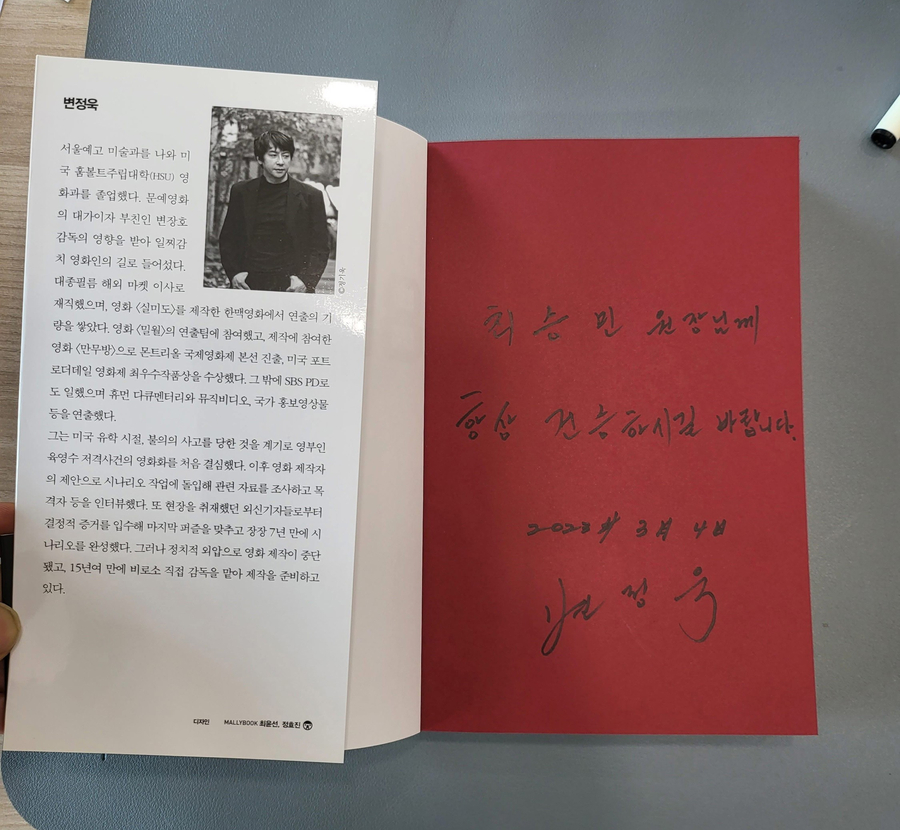 변정욱
서울예고 미술과를 나와 미
국 훔볼트주립대학(HSU) 영
화과를 졸업했다. 문예영화
의 대가이자 부친인 변장호
감독의 영향을 받아 일찌감
치 영화인의 길로 들어섰다.
대종필름 해외 마켓 이사로
재직했으며, 영화 〈실미도〉를 제작한 한맥영화에서 연출의 기
량을 쌓았다. 영화 〈밀월〉의 연출팀에 참여했고, 제작에 참여한
영화 〈만무방〉으로 몬트리올 국제영화제 본선 진출, 미국 포트
로더데일 영화제 최우수작품상을 수상했다. 그 밖에 SBS PD로
도 일했으며 휴먼 다큐멘터리와 뮤직비디오, 국가 홍보영상물
등을 연출했다.
그는 미국 유학 시절, 불의의 사고를 당한 것을 계기로 영부인
육영수 저격사건의 영화화를 처음 결심했다. 이후 영화 제작자
의 제안으로 시나리오 작업에 돌입해 관련 자료를 조사하고 목
격자 등을 인터뷰했다. 또 현장을 취재했던 외신기자들로부터
결정적 증거를 입수해 마지막 퍼즐을 맞추고 장장 7년 만에 시
나리오를 완성했다. 그러나 정치적 외압으로 영화 제작이 중단
됐고, 15년여 만에 비로소 직접 감독을 맡아 제작을 준비하고
있다.
디자인 MALLYBOOK 최윤선, 정효진
최승민 원장님께
항상 건승하시길 바랍니다.
2023年 3月 4日
변정욱